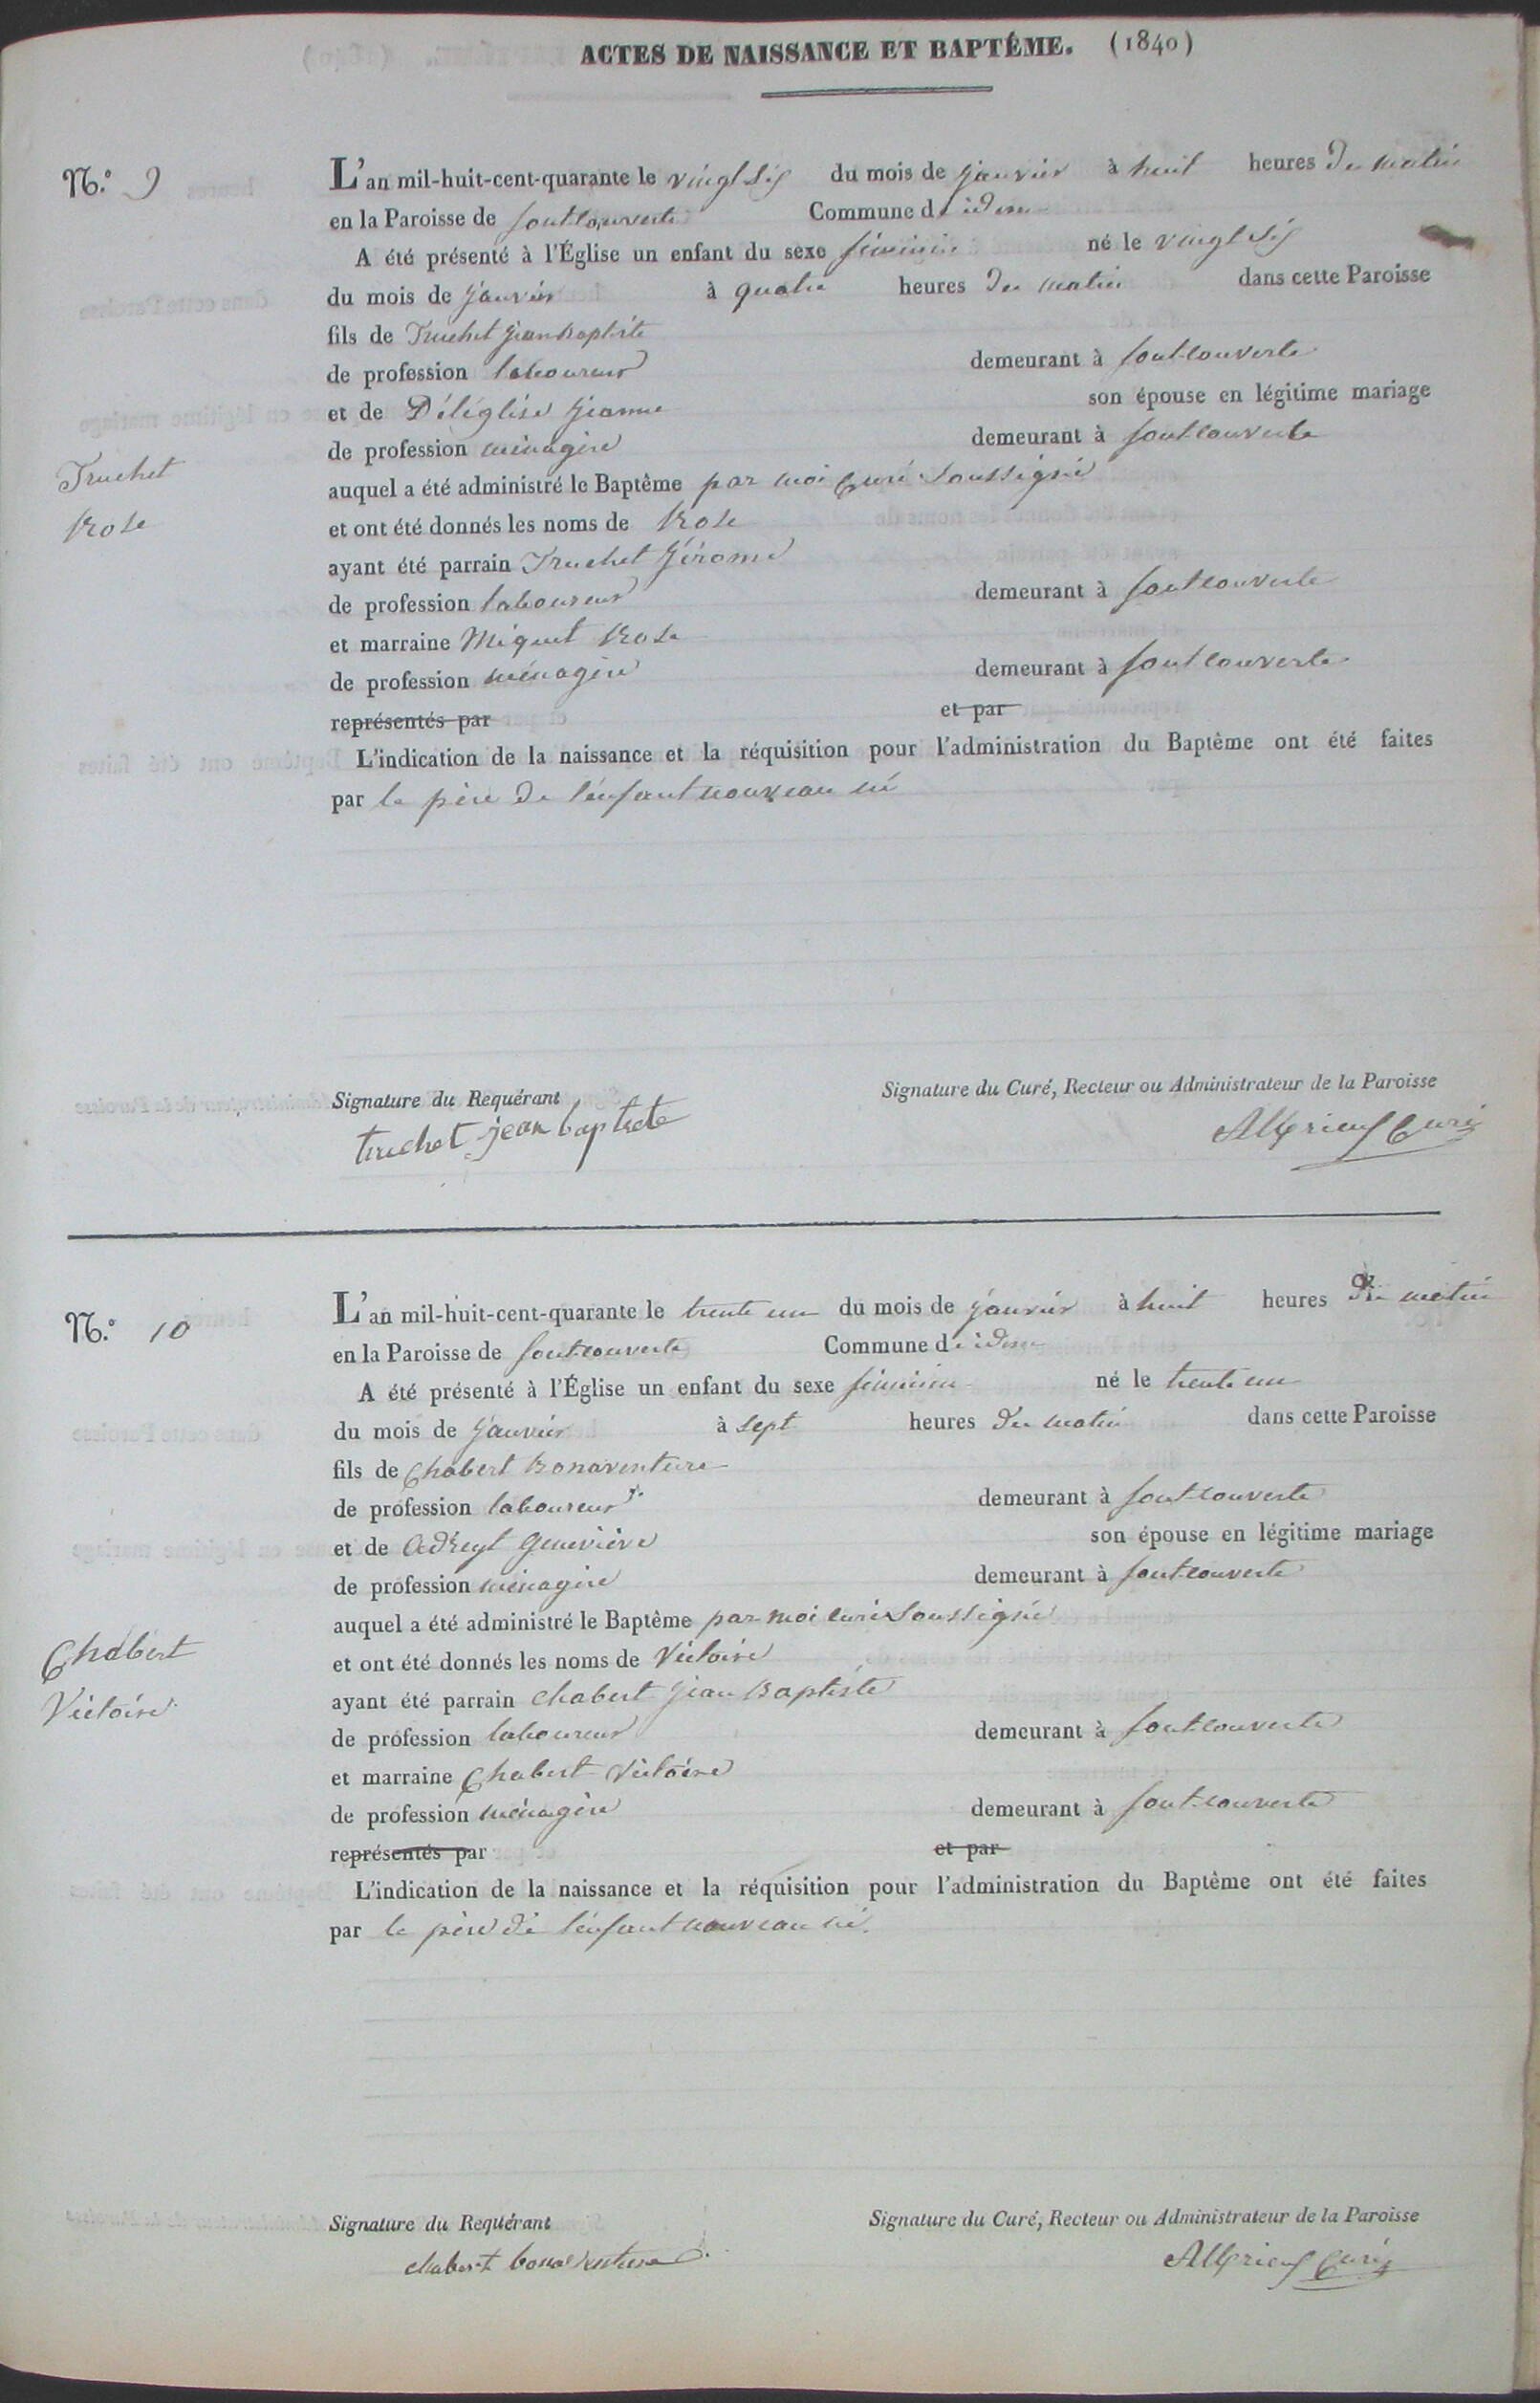 ACTES DE NAISSANCE ET BAPTÊME. (1840)
N.º 9
L'an mil-huit-cent-quarante le vingt six du mois de janvier à huit heures du matin
en la Paroisse de fontcouverte Commune de idem
A été présenté à l'Église un enfant du sexe féminin né le vingt six
du mois de janvier à quatre heures du matin dans cette Paroisse
fils de Truchet jean baptiste
de profession laboureur demeurant à fontcouverte
et de Déléglise jeanne son épouse en légitime mariage
de profession ménagère demeurant à fontcouverte
Truchet
Rose
auquel a été administré le Baptême par moi curé soussigné
et ont été donnés les noms de Rose
ayant été parrain Truchet jérome
de profession laboureur demeurant à fontcouverte
et marraine Miquet Rose
de profession ménagère demeurant à fontcouverte
représentés par et par
L'indication de la naissance et la réquisition pour l'administration du Baptême ont été faites
par le père de l'enfant nouveau né
Signature du Requérant Signature du Curé, Recteur ou Administrateur de la Paroisse
truchet jean baptiste curé
N.º 10
L'an mil-huit-cent-quarante le trente un du mois de janvier à huit heures du matin
en la Paroisse de fontcouverte Commune de idem
A été présenté à l'Église un enfant du sexe féminin né le trente un
du mois de janvier à sept heures du matin dans cette Paroisse
fils de Chabert Bonaventure
de profession laboureur demeurant à fontcouverte
et de Geneviève son épouse en légitime mariage
de profession ménagère demeurant à fontcouverte
Chabert
Victoire
auquel a été administré le Baptême par moi curé soussigné
et ont été donnés les noms de Victoire
ayant été parrain Chabert jean Baptiste
de profession laboureur demeurant à fontcouverte
et marraine Chabert Victoire
de profession ménagère demeurant à fontcouverte
représentés par et par
L'indication de la naissance et la réquisition pour l'administration du Baptême ont été faites
par le père de l'enfant nouveau né.
Signature du Requérant Signature du Curé, Recteur ou Administrateur de la Paroisse
chabert bonaventure curé